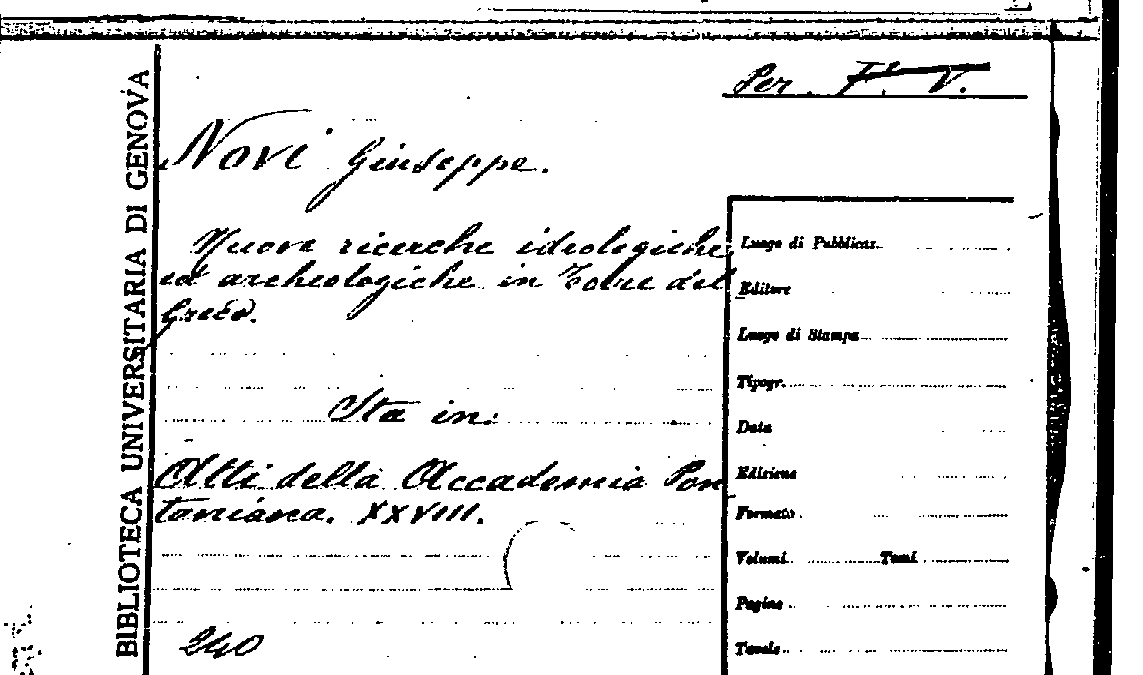 Per. F. V.
Novi Giuseppe.
Nuove ricerche idrologiche
ed archeologiche in Torre del
Greco.
Sta in:
Atti della Accademia Pon
taniana. XXVIII.
240
BIBLIOTECA UNIVERSITARIA DI GENOVA
Luogo di Pubblicaz.
Editore
Luogo di Stampa
Tipogr.
Data
Edizione
Formato
Volumi Tomi
Pagine
Tavole